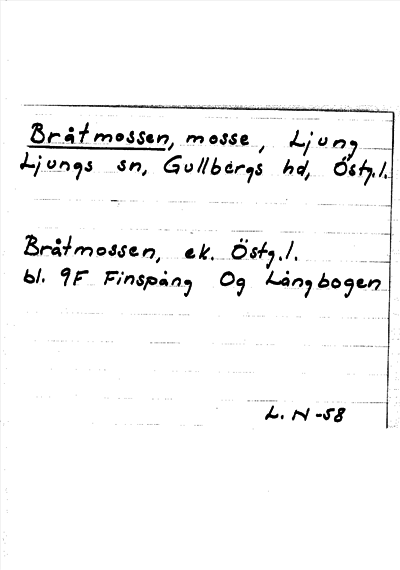 Bråtmossen, mosse, Ljung
Ljungs sn, Gullbergs hd, Östg.l.
Bråtmossen, ek. Östg.l.
bl. 9F Finspång Og Långbogen
L. N -58